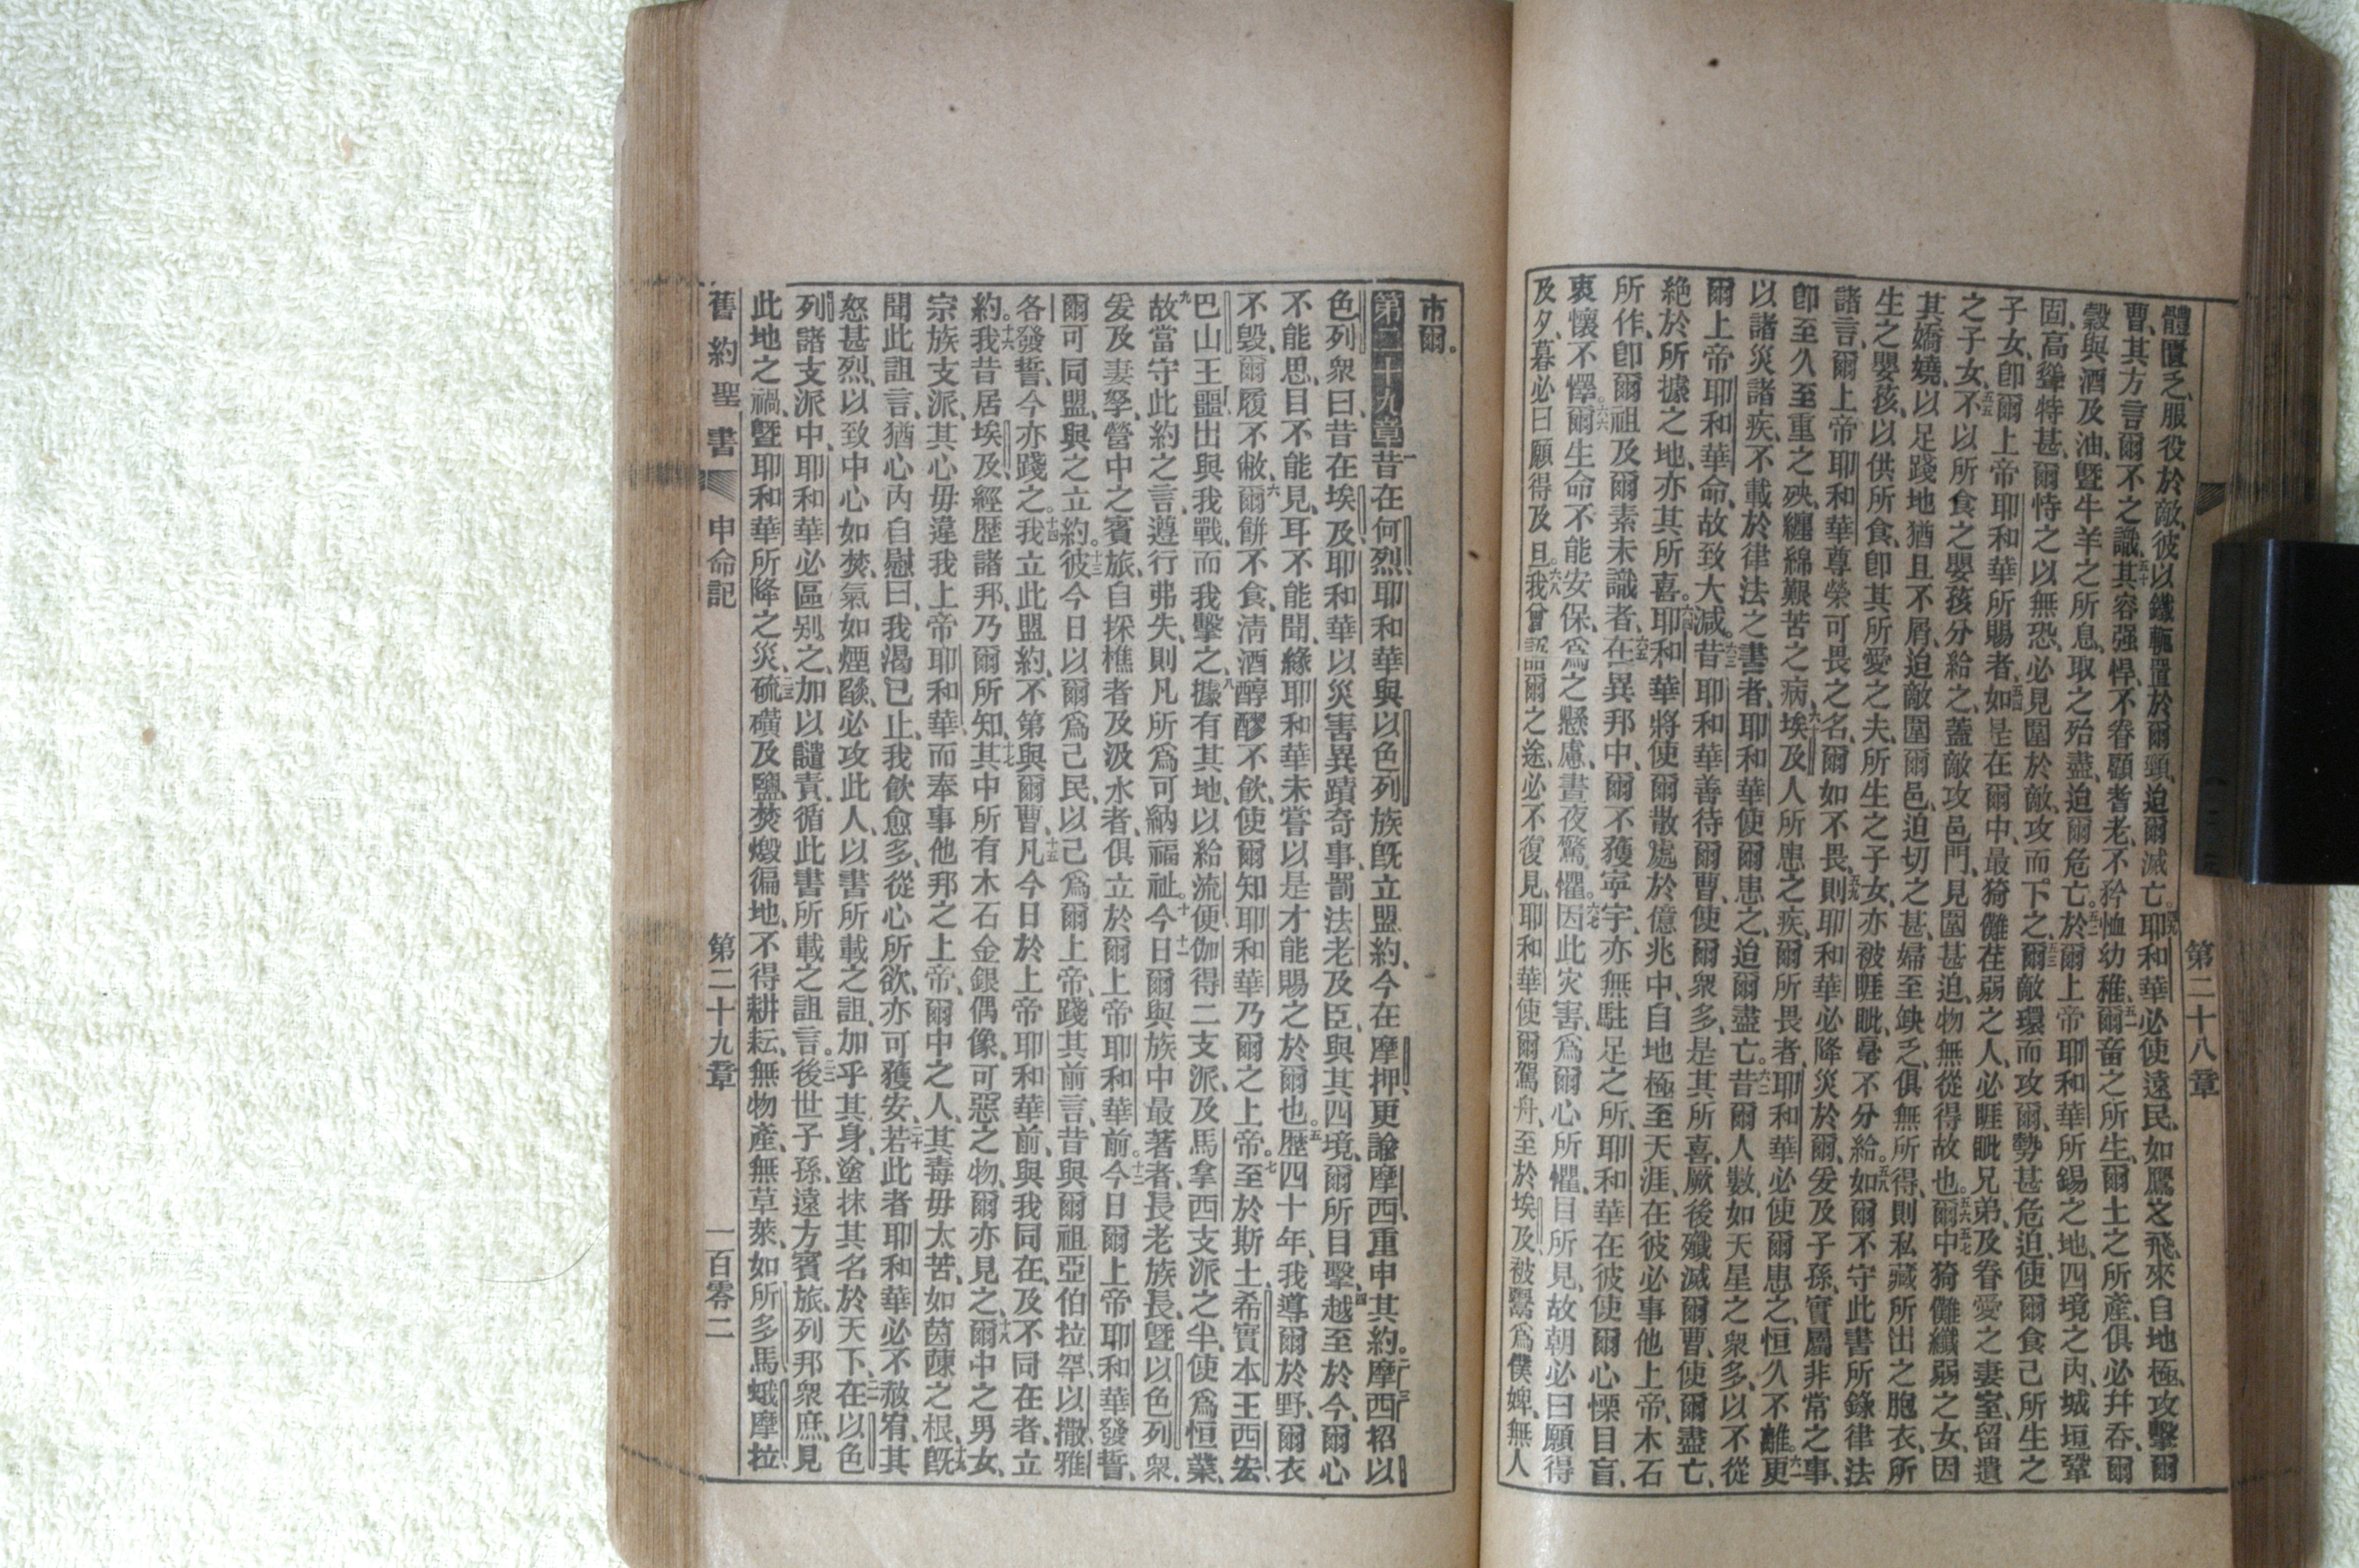 第二十八章
體匱乏、服役於敵、彼以鐵軛置於爾頸、迫爾滅亡。四九耶和華必使遠民、如鷹之飛、來自地極、攻擊爾
曹、其方言爾不之識、五十其容强悍、不眷顧耆老、不矜恤幼稚、五一爾畜之所生、爾土之所產、俱必幷吞、爾
穀與酒及油、曁牛羊之所息、取之殆盡、迫爾危亡。五二於爾上帝耶和華所錫之地、四境之內、城垣鞏
固、高聳特甚、爾恃之以無恐、必見圍於敵、攻而下之、五三爾敵環而攻爾、勢甚危迫、使爾食己所生之
子女、卽爾上帝耶和華所賜者、如是、五四在爾中、最猗儺荏弱之人、必睚眦兄弟、及眷愛之妻室、留遺
之子女、五五不以所食之嬰孩分給之、蓋敵攻邑門、見圍甚迫、物無從得故也。五六爾中猗儺纖弱之女、因
其嬌嬈、以足踐地猶且不屑、迫敵圍爾邑、迫切之甚、婦至缺乏、俱無所得、五七則私藏所出之胞衣、所
生之嬰孩、以供所食、卽其所愛之夫、所生之子女、亦被睚眦、毫不分給。五八如爾不守此書所錄律法
諸言、爾上帝耶和華尊榮可畏之名、爾如不畏、五九則耶和華必降災於爾、爰及子孫、實屬非常之事、
卽至久至重之殃、纏綿艱苦之病、六十埃及人所患之疾、爾所畏者、耶和華必使爾患之、恒久不離、六一更
以諸災諸疾、不載於律法之書者、耶和華使爾患之、迫爾盡亡。六二昔爾人數、如天星之衆多、以不從
爾上帝耶和華命、故致大減。六三昔耶和華善待爾曹、使爾衆多、是其所喜、厥後殲滅爾曹、使爾盡亡、
絶於所據之地、亦其所喜。六四耶和華將使爾散處於億兆中、自地極至天涯、在彼必事他上帝、木石
所作、卽爾祖及爾素未識者、六五在異邦中、爾不獲寧宇、亦無駐足之所、耶和華在彼使爾心慄目盲、
衷懷不懌。六六爾生命不能安保、爲之懸慮、晝夜驚懼。六七因此灾害、爲爾心所懼、目所見、故朝必曰、願得
及夕、暮必曰、願得及旦。六八我曾語爾之途、必不復見、耶和華使爾駕舟、至於埃及、被鬻爲僕婢、無人
市爾。
第二十九章 一昔在何烈、耶和華與以色列族旣立盟約、今在摩押、更諭摩西重申其約。二摩西招以
色列衆曰、昔在埃及、耶和華以災害異蹟奇事、三罰法老及臣、與其四境、爾所目擊、四越至於今、爾心
不能思、目不能見、耳不能聞、緣耶和華未嘗以是才能賜之於爾也。五歷四十年、我導爾於野、爾衣
不毀、爾履不敝、六爾餠不食、淸酒醇醪不飮、使爾知耶和華乃爾之上帝。七至於斯土、希實本王西宏、
巴山王噩、出與我戰、而我擊之、八據有其地、以給流便伽得二支派、及馬拿西支派之半、使爲恒業、
九故當守此約之言、遵行弗失、則凡所爲可納福祉。十今日爾與族中最著者、長老族長、曁以色列衆、
十一爰及妻孥、營中之賓旅、自採樵者及汲水者、俱立於爾上帝耶和華前。十二今日爾上帝耶和華發誓、
爾可同盟、與之立約。十三彼今日以爾爲己民、以己爲爾上帝、踐其前言、昔與爾祖亞伯拉罕、以撒、雅
各、發誓、今亦踐之。十四我立此盟約、不第與爾曹、十五凡今日於上帝耶和華前、與我同在、及不同在者、立
約。十六我昔居埃及、經歷諸邦、乃爾所知、十七其中所有木石金銀偶像、可惡之物、爾亦見之、十八爾中之男女、
宗族支派、其心毋違我上帝耶和華、而奉事他邦之上帝、爾中之人、其毒毋太苦、如茵蔯之根、十九旣
聞此詛言、猶心內自慰曰、我渴已止、我飮愈多、從心所欲、亦可獲安、二十若此者、耶和華必不赦宥、其
怒甚烈、以致中心如焚、氣如煙燄、必攻此人、以書所載之詛、加乎其身、塗抹其名於天下、二一在以色
列諸支派中、耶和華必區別之、加以譴責、循此書所載之詛言。二二後世子孫、遠方賓旅、列邦衆庶、見
此地之禍、曁耶和華所降之災、二三硫磺及鹽、焚燬徧地、不得耕耘、無物產、無草萊、如所多馬、蛾摩拉、
舊約聖書 申命記 第二十九章 一百零二